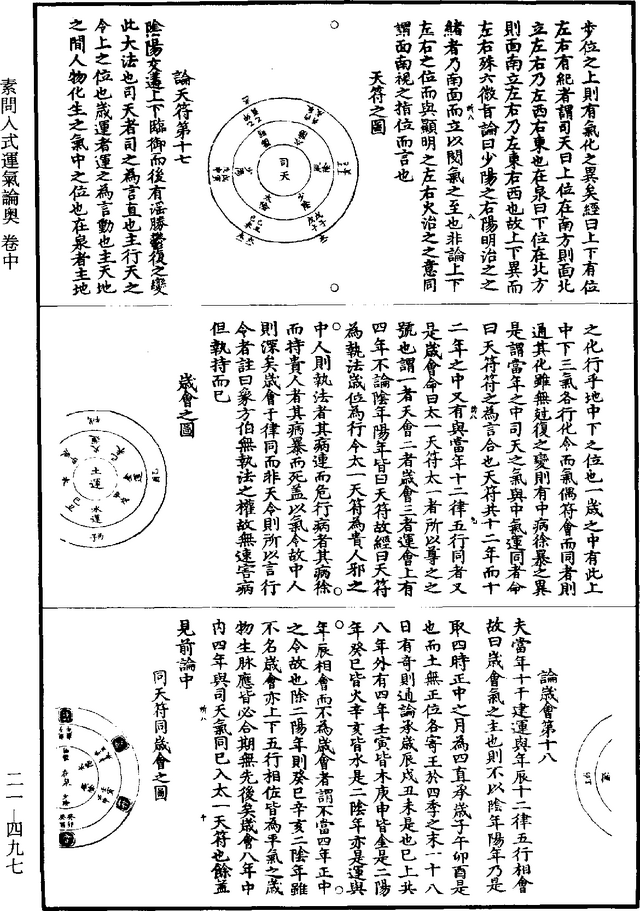 素問入式運氣論奧 卷中
步位之上則有氣化之異矣經曰上下有位
左右有紀者謂司天曰上位在南方則面北
立左右乃左西右東也在泉曰下位在北方
則面南立左右乃左東右西也故上下異而
左右殊六微旨論曰少陽之右陽明治之之
緒者乃南面而立以閱氣之至也非論上下
左右之位而與顯明之左右火治之之意同
謂面南視之指位而言也
天符之圖
司天
論天符第十七
陰陽交遘上下臨御而後有淫勝鬱復之變
此大法也司天者司之為言直也主行天之
令上之位也歲運者運之為言動也主天地
之間人物化生之氣中之位也在泉者主地
之化行乎地中下之位也一歲之中有此上
中下三氣各行化令而氣偶符會而同者則
通其化雖無尅復之變則有中病徐暴之異
是謂當年之中司天之氣與中氣運同者命
曰天符符之為言合也天符共十二年而十
二年之中又有與當年十二律五行同者又
是歲會命曰太一天符太一者所以尊之之
號也謂一者天會二者歲會三者運會上有
四年不論陰年陽年皆曰天符故經曰天符
為執法歲位為行令太一天符為貴人邪之
中人則執法者其病速而危行病者其病徐
而持貴人者其病暴而死蓋以氣令故中人
則深矣歲會于律同而非天令則所以言行
令者註曰象方伯無執法之權故無速害病
但執持而已
歲會之圖
土運
水運
論歲會第十八
夫當年十干建運與年辰十二律五行相會
故曰歲會氣之主也則不以陰年陽年乃是
取四時正中之月為四直承歲子午卯酉是
也而土無正位各寄王於四季之末一十八
日有奇則通論承歲辰戌丑未是也已上共
八年外有四年壬寅皆木庚申皆金是二陽
年癸巳皆火辛亥皆水是二陰年亦是運與
年辰相會而不為歲會者謂不當四年正中
之令故也除二陽年則癸巳辛亥二陰年雖
不名歲會亦上下五行相位皆為平氣之歲
物生脉應皆必合期無先後矣歲會八年中
內四年與司天氣同已入太一天符也餘蓋
見前論中
同天符同歲會之圖
二一—四九七